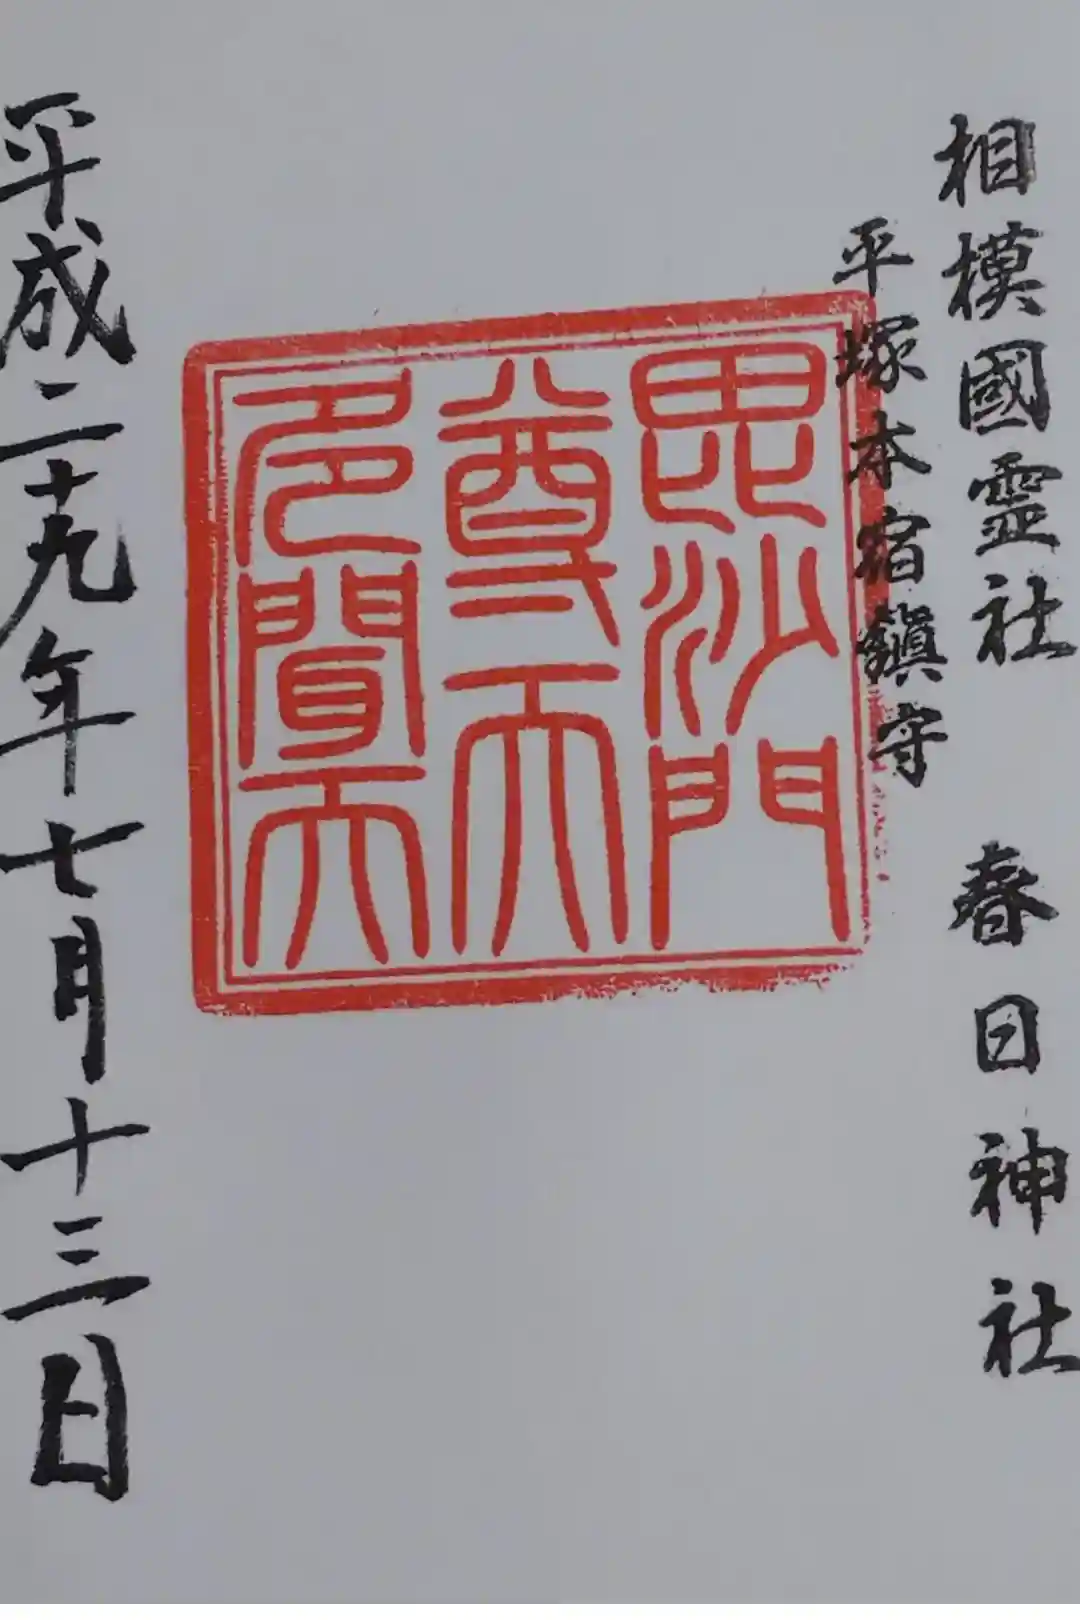 相模國霊社　春日神社
平塚本宿鎮守
毘沙門
尊天
多聞天
平成二十九年七月十三日